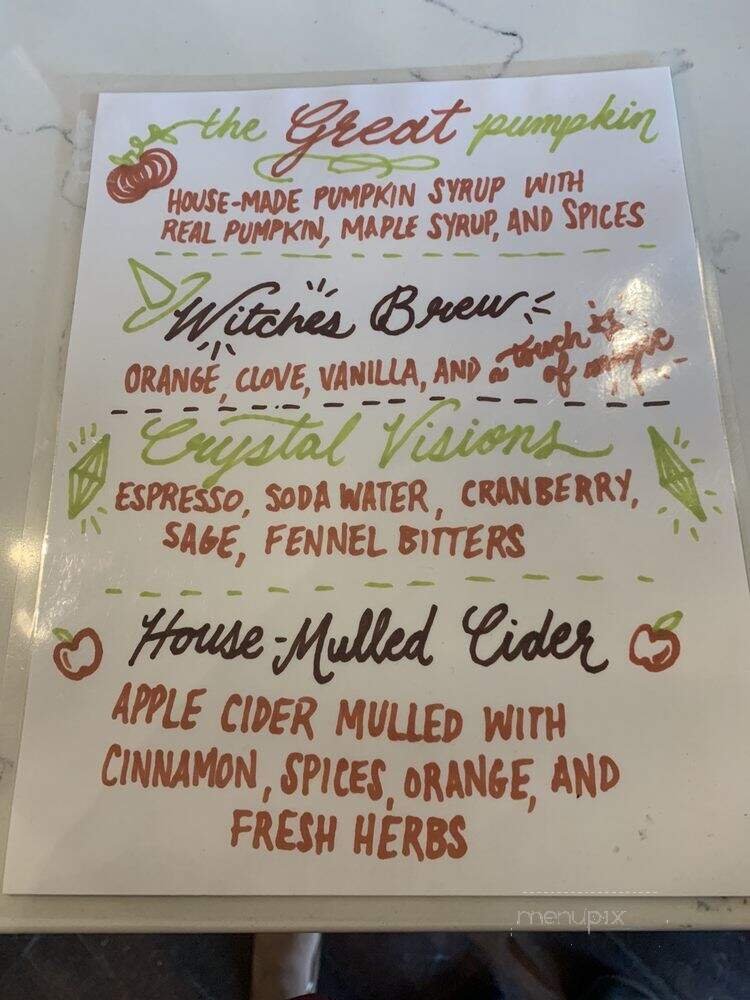 the Great pumpkin
HOUSE-MADE PUMPKIN SYRUP WITH
REAL PUMPKIN, MAPLE SYRUP, AND SPICES
Witches Brew
ORANGE, CLOVE, VANILLA, AND a touch
of magic
Crystal Visions
ESPRESSO, SODA WATER, CRANBERRY,
SAGE, FENNEL BITTERS
House-Mulled Cider
APPLE CIDER MULLED WITH
CINNAMON, SPICES, ORANGE, AND
FRESH HERBS
menupix